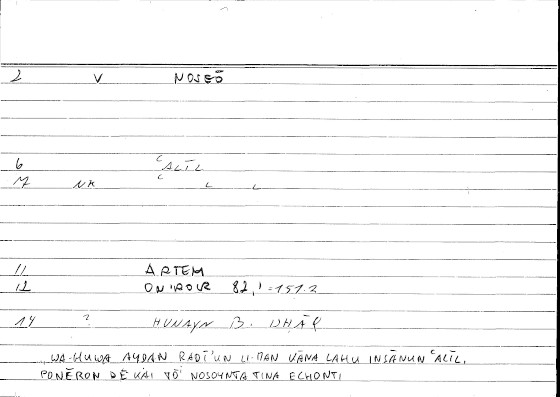 2 V NOSEŌ
6 ʿALĪL
M NK ʿ ʿ ʿ
11 ARTEM
12 ONIROCR 82,1=151.2
14 ? HUNAYN B. ISHĀQ
WA-HUWA AYDAN RADĪ'UN LI-MAN KĀNA LAHU INSĀNUN ʿALĪL.
PONĒRON DE KAI TŌ NOSOYNTA TINA ECHONTI